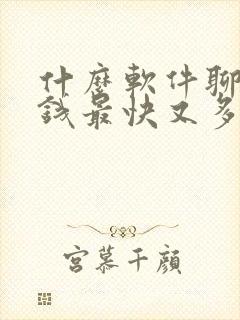 什麼軟件聊
錢最快又多
宮慕千顏